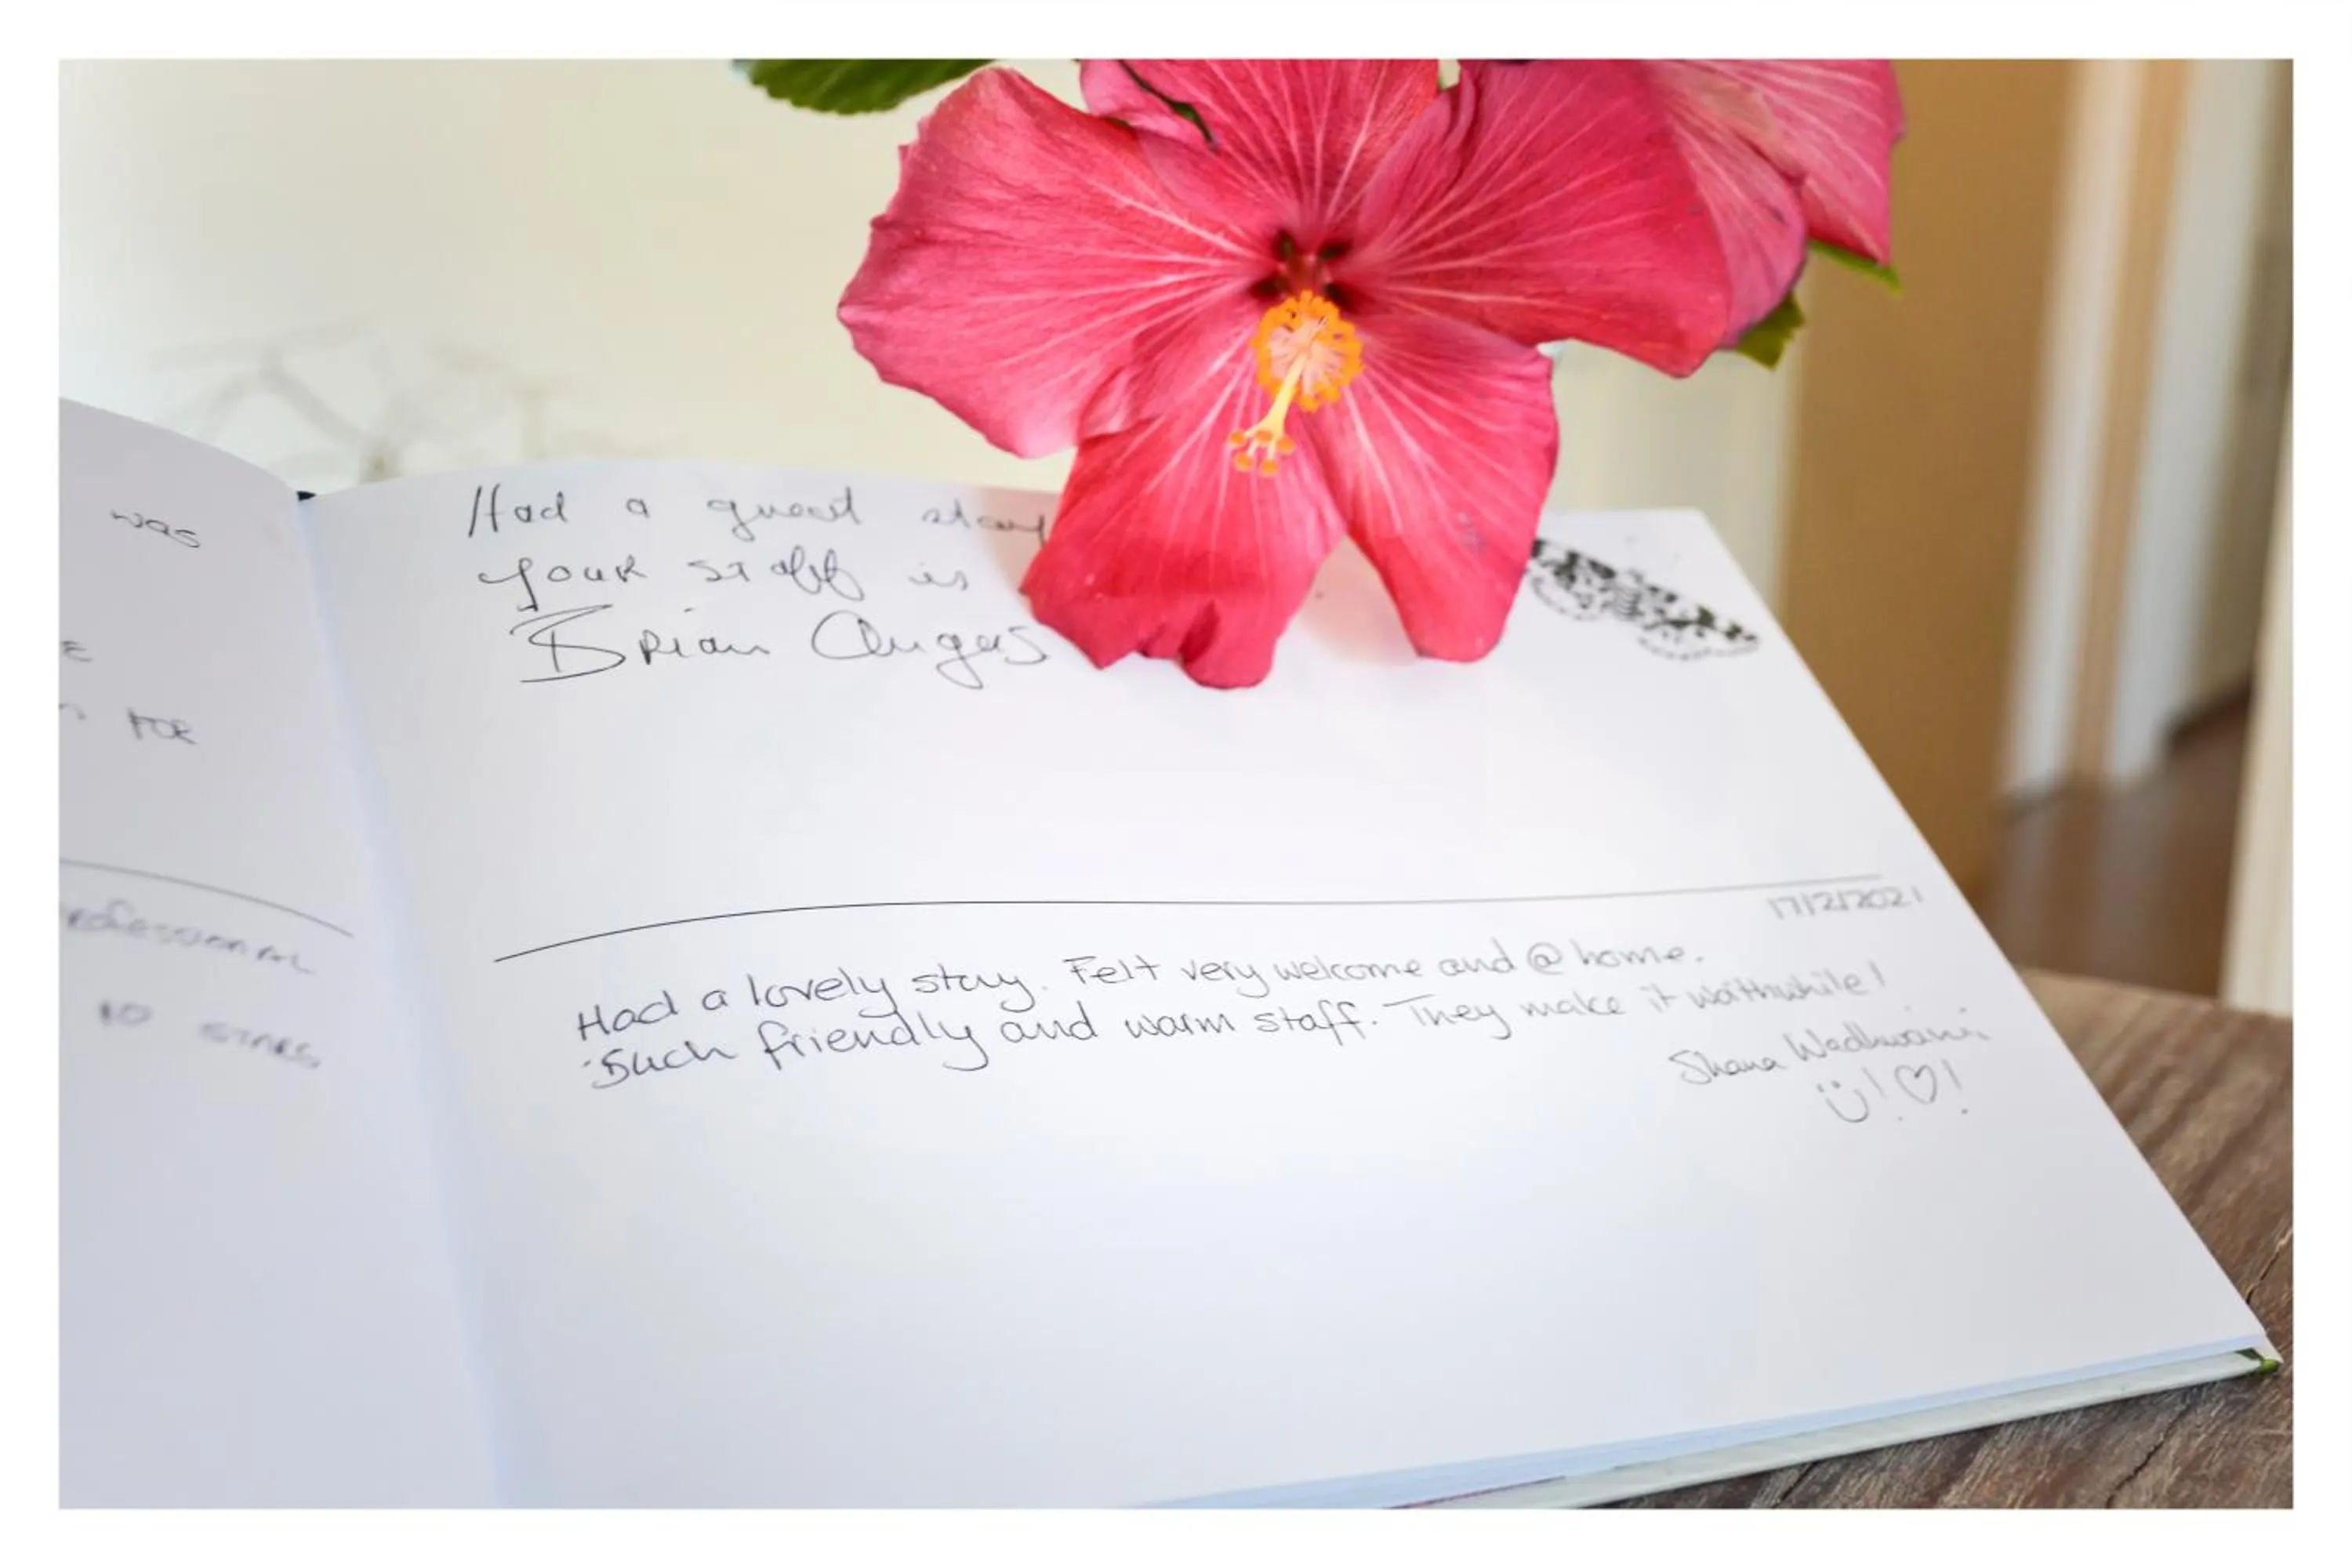 was
FOR
PROFESSIONAL
10 STARS
Had a great stay
Your staff is
Brian Angus
17/2/2021
Had a lovely stay. Felt very welcome and @ home.
Such friendly and warm staff. They make it worthwhile!
Shana Wadhwani